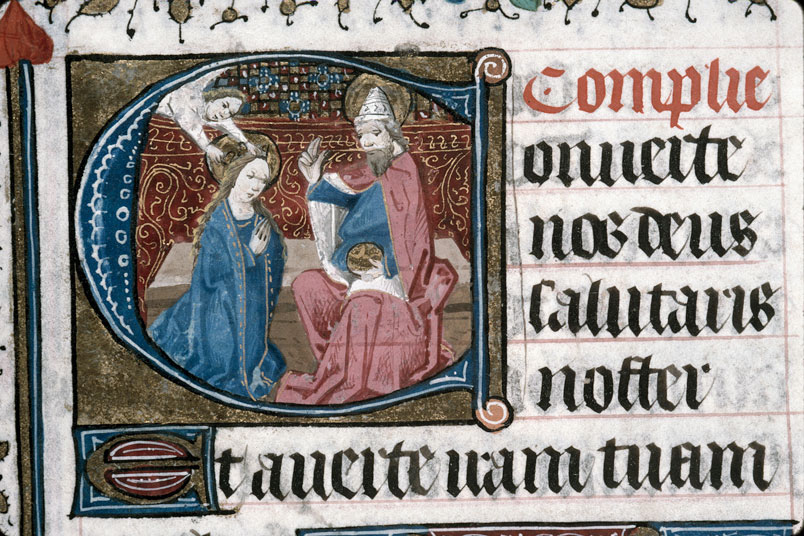 Complie
Conuerte
nos deus
salutaris
noster
Et auerte iram tuam